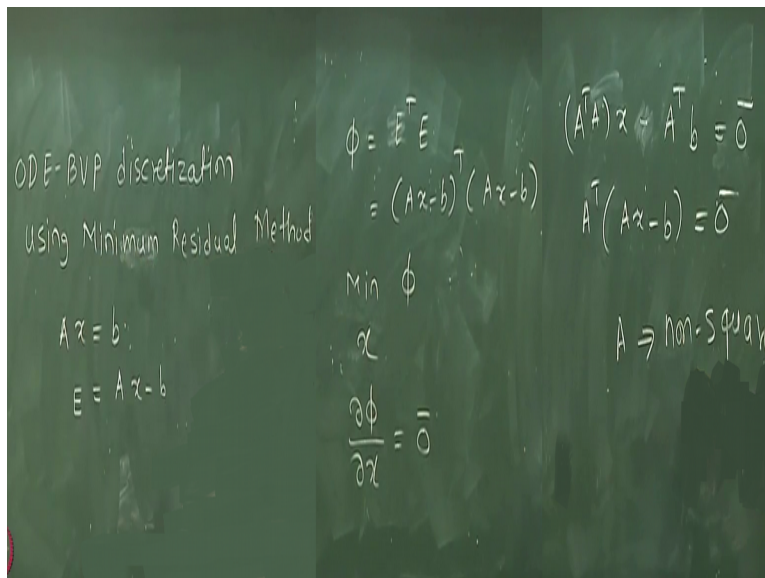 ODE-BVP discretization
using Minimum Residual Method
Ax = b
E = Ax - b
ϕ = E^T E
= (Ax-b)^T (Ax-b)
Min ϕ
x
∂ϕ/∂x = 0̄
(A^T A) x - A^T b = 0̄
A^T (Ax-b) = 0̄
A ⇒ non-squar